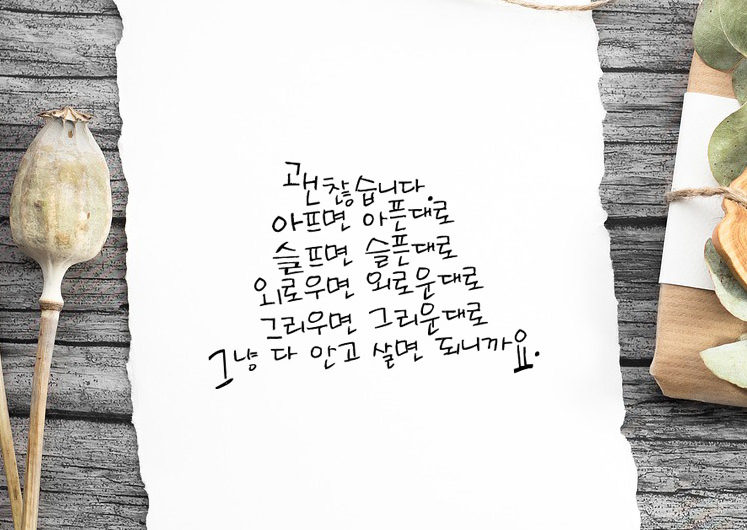 괜찮습니다.
아프면 아픈대로
슬프면 슬픈대로
외로우면 외로운대로
그리우면 그리운대로
그냥 다 안고 살면 되니까요.